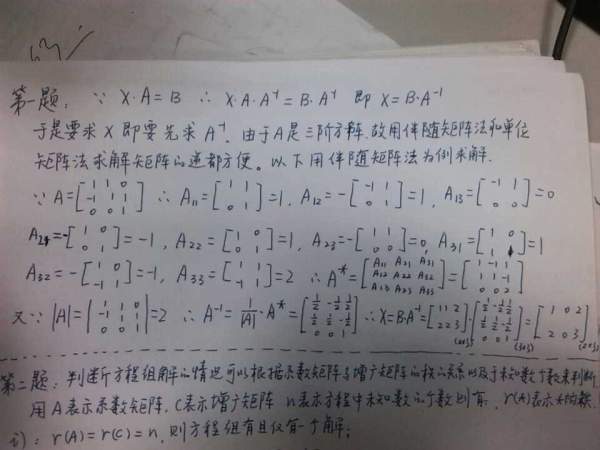 第一题: ∵ X·A=B ∴ X·A·A⁻¹=B·A⁻¹ 即 X=B·A⁻¹
于是要求 X 即要先求 A⁻¹. 由于A是三阶方阵. 故用伴随矩阵法和单位
矩阵法求解矩阵的逆都方便。以下用伴随矩阵法为例求解.
∵ A=[1 1 0; -1 1 1; 0 0 1] ∴ A₁₁=[1 1; 0 1]=1, A₁₂=-[-1 1; 0 1]=1, A₁₃=[-1 1; 0 0]=0
A₂₁=-[1 0; 0 1]=-1, A₂₂=[1 0; 0 1]=1, A₂₃=-[1 1; 0 0]=0, A₃₁=[1 0; 1 1]=1
A₃₂=-[1 0; -1 1]=-1, A₃₃=[1 1; -1 1]=2 ∴ A*=[A₁₁ A₂₁ A₃₁; A₁₂ A₂₂ A₃₂; A₁₃ A₂₃ A₃₃]=[1 -1 1; 1 1 -1; 0 0 2]
又∵ |A|=|1 1 0; -1 1 1; 0 0 1|=2 ∴ A⁻¹=1/|A|·A*=[1/2 -1/2 1/2; 1/2 1/2 -1/2; 0 0 1] ∴ X=B·A⁻¹=[1 1 2; 2 2 3](2×3)·[1/2 -1/2 1/2; 1/2 1/2 -1/2; 0 0 1](3×3)=[1 0 2; 2 0 3](2×3)
第二题: 判断方程组解的情况可以根据系数矩阵与增广矩阵的秩的关系以及于未知数个数来判断.
用A表示系数矩阵. C表示增广矩阵 n表示方程中未知数的个数则有: r(A)表示A的秩.
i): r(A)=r(C)=n, 则方程组有且仅有一个解;